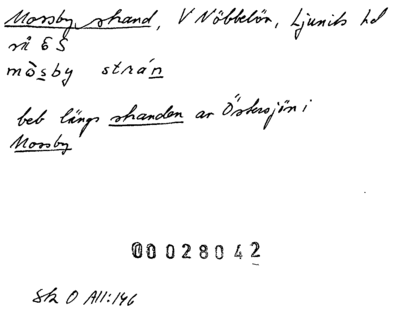 Mossby strand, V Nöbbelöv, Ljunits hd
rå 6 S
mòsby strán
beb längs stranden av Östersjön i
Mossby
00028042
Sk O All:146